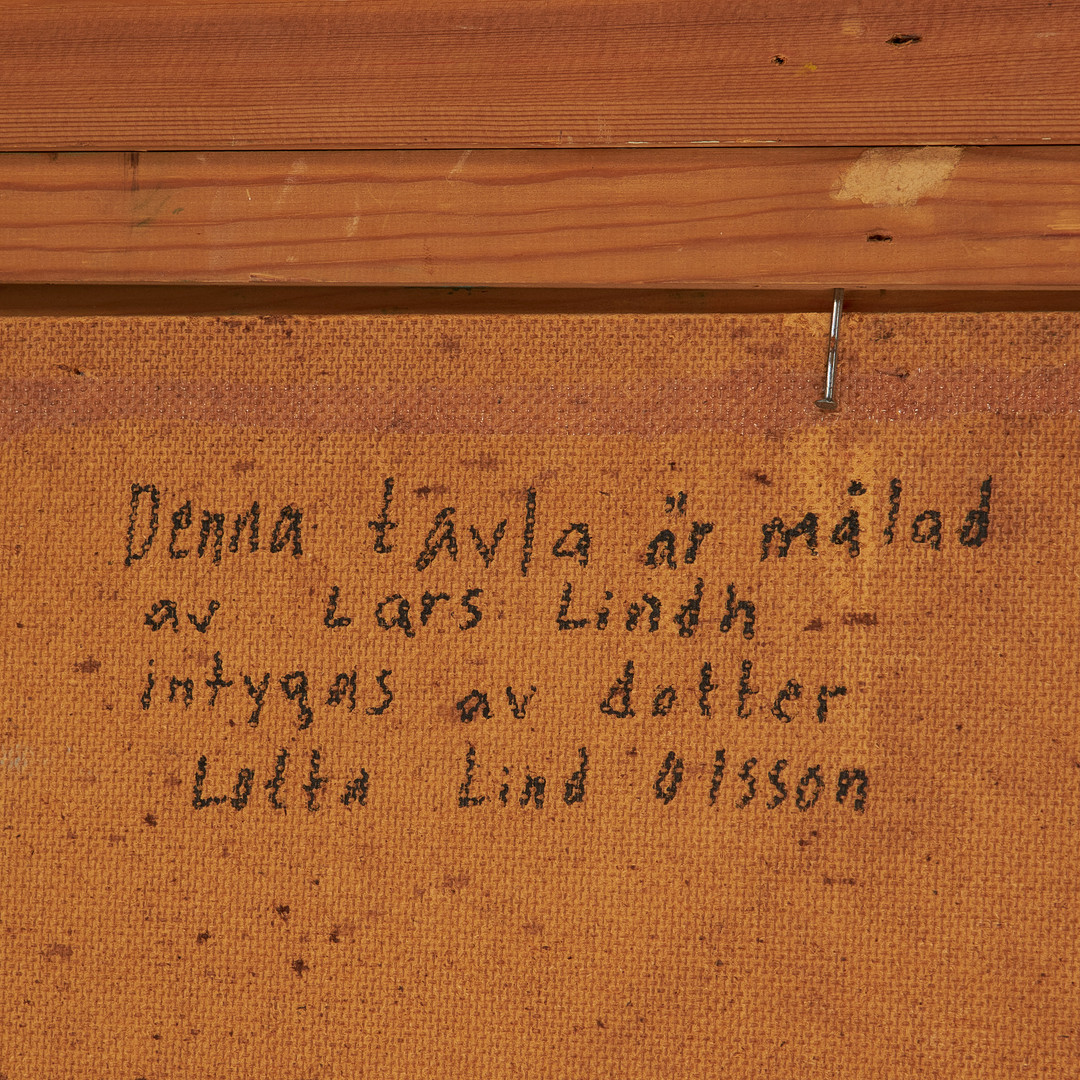 Denna tavla är målad
av Lars Lindh
intygas av dotter
Lotta Lind Olsson